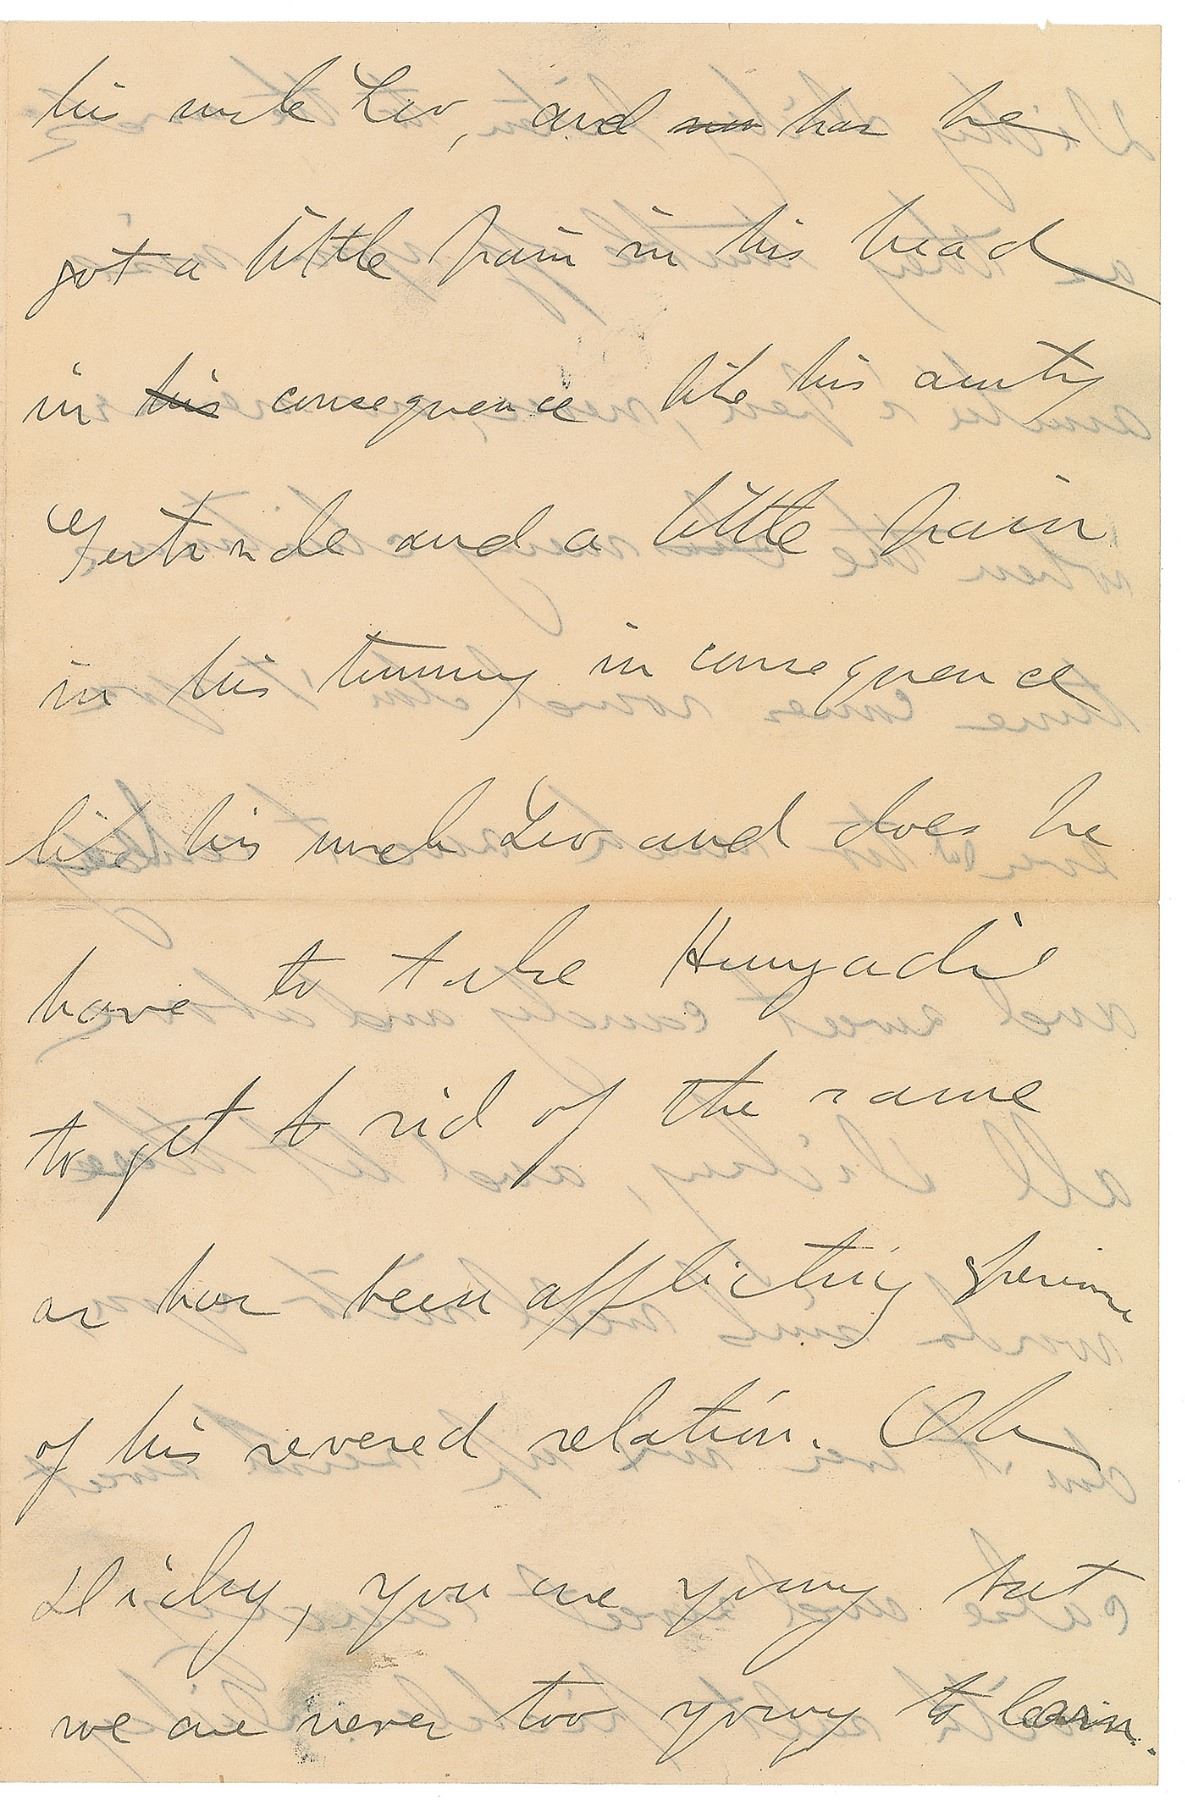 his uncle Leo, and ~~now~~ has he
got a little pain in his head
in ~~his~~ consequence like his aunty
Gertrude and a little pain
in his tummy in consequence
like his uncle Leo and does he
have to take Hunyadi
to get to rid of the same
as has been afflicting
of his revered relation. Oh
Dicky, you are young but
we are never too young to learn.